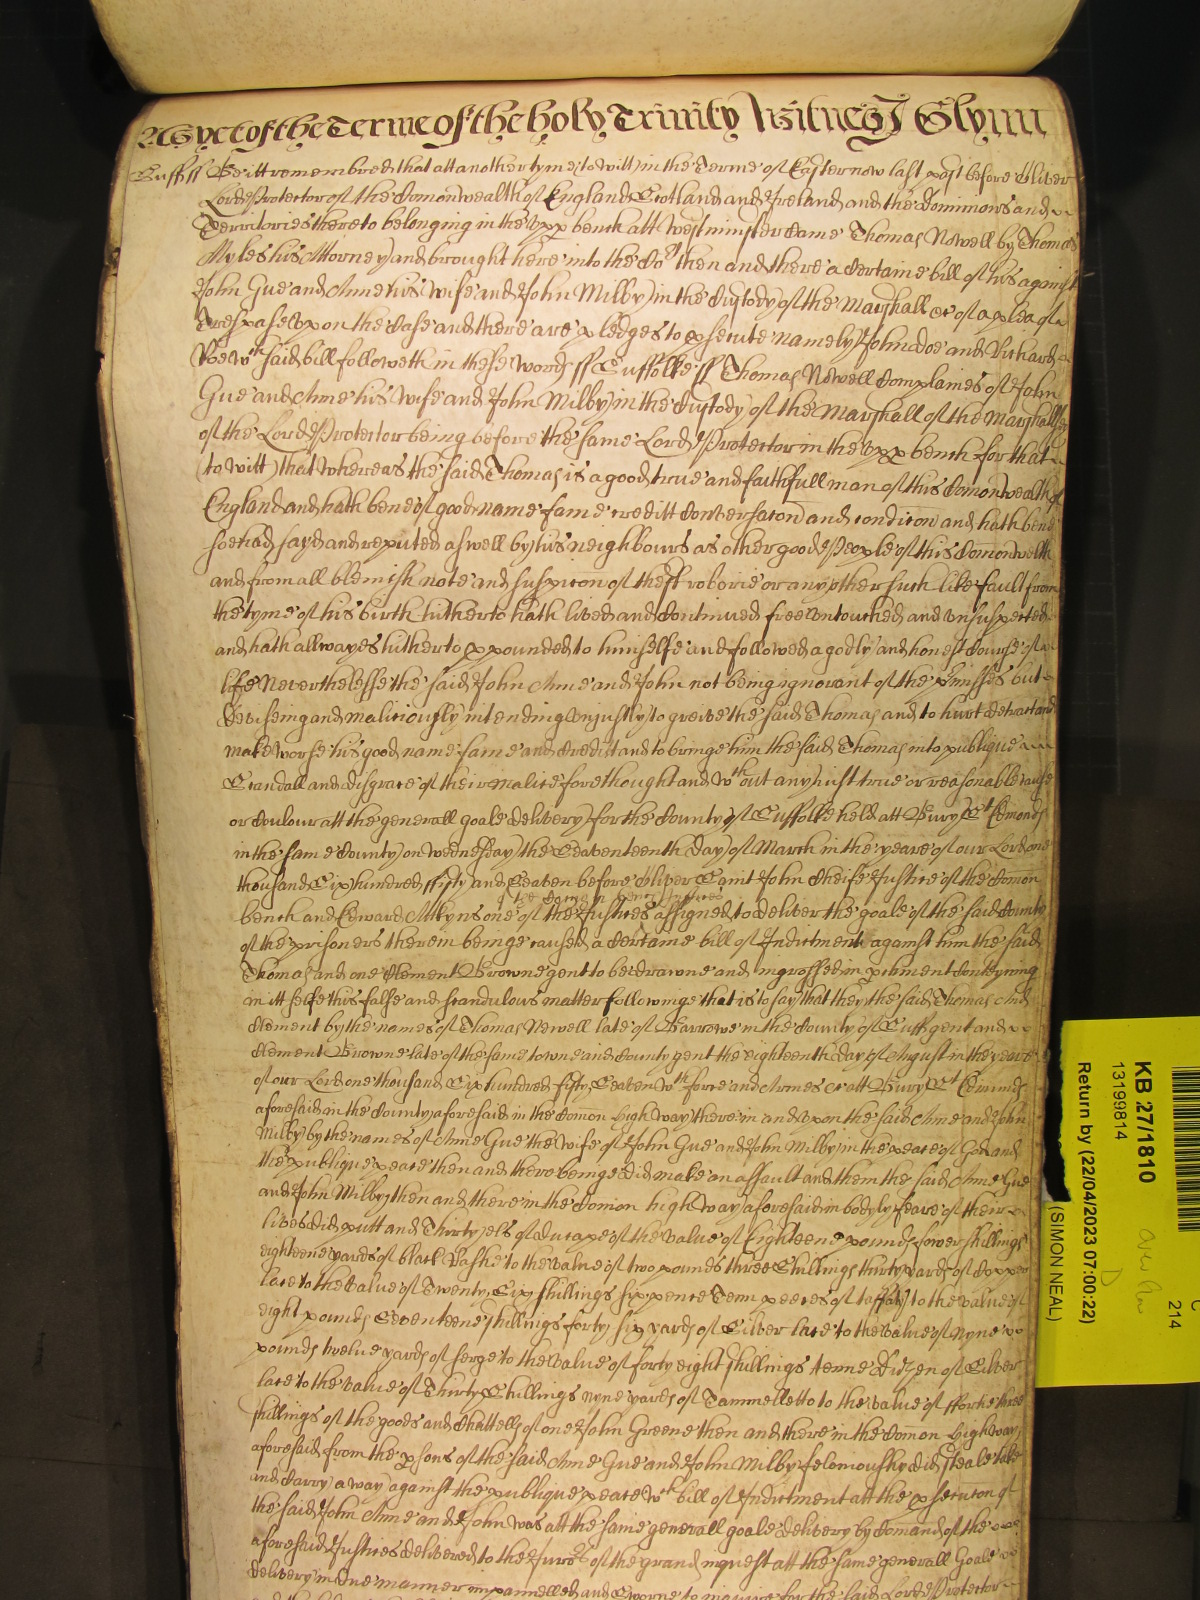 As yet of the Terme of the holy Trinity Witnes J Glynn
Suff ss Be itt remembred that att another tyme (to witt) in the Terme of Easter now last past before Oliver
Lord Protector of the Comonwealth of England Scotland and Ireland and the Dominions and
Territories thereto belonging in the vpp bench att Westminster came Thomas Newell by Thomas
Myles his Attorney and brought here into the Cort then and there a certaine bill of his against
John Gue and Anne his wife and John Milby in the Custody of the Marshall &c of a plea of
Trespasse vpon the Case and there are pledges to psecute namely John doe and Richard
Roe wch said bill followeth in these words ss Suffolke ss Thomas Newell Complaines of John
Gue and Anne his wife and John Milby in the Custody of the Marshall of the Marshalls
of the Lord Protector being before the same Lord Protector in the vpp bench for that
(to witt) that whereas the said Thomas is a good true and faithfull man of this Comonwealth of
England and hath bene of good name fame creditt Conversacon and condicon and hath bene
soe had sayd and reputed aswell by his neighbours as other good People of this Comonwelth
and from all blemish note and suspicon of theft roborie or any other such like fault from
the tyme of his birth hitherto hath lived and Continued free vntouched and vnsuspected
and hath allwayes hitherto ppounded to himselfe and followed a godly and honest Course of
life Neverthelesse the said John Anne and John not being ignorant of the pmisses but
deviseing and malitiously intending vnjustly to greive the said Thomas and to hurt detract and
make worse his good name fame and Creditt and to bringe him the said Thomas into publique
Scandall and disgrace of their malice forethought and wthout any just true or reasonable cause
or Coulour att the generall goale delivery for the County of Suffolke held att Bury St Edmonds
in the same County on Wednesday the Seaventeenth day of March in the yeare of our Lord one
thousand Six hundred fifty and Seaven before Oliver Saint John Cheife Justice of the Comon
of the Comon bench Justices
bench and Edward Atkyns one of the Justices assigned to deliver the goale of the said County
of the prisoners therein beinge caused a certaine bill of Indictment against him the said
Thomas and one Clement Browne gent to be drawne and ingrossed in pchment Conteyning
in itt selfe this false and scandulows matter followinge that is to say that they the said Thomas And
Clement by the names of Thomas Newell late of Barrowe in the County of Suff gent and
Clement Browne late of the same towne and County gent the eighteenth day of August in the yeare
of our Lord one thousand Six hundred fifty Seaven wth force and Armes &c att Bury St Edmunds
aforesaid in the County aforesaid in the Comon high way there in and vpon the said Anne and John
Milby by the names of Anne Gue the wife of John Gue and John Milby in the peace of God and
the publique peace then and there beinge did make an assault and them the said Anne Gue
and John Milby then and there in the Comon high way aforesaid in bodyly feare of their
lives did putt and Thirty ells of ducape of the value of Eighteene pounds fower shillings
eighteene yards of black Vashe to the value of two pounds three Shillings thirty yards of Copper
lace to the value of Twenty Six shillings six pence Tenn peeces of taffaty to the value of
eight pounds Seventeene shillings forty six yards of Silver lace to the value of nyne
pounds twelve yards of serge to the value of forty eight shillings tenne Dozen of Silver
lace to the value of Thirty Shillings nyne yards of Tammelletto to the value of fforty three
shillings of the goods and Chattells of one John Greene then and there in the Comon high way
aforesaid from the psons of the said Anne Gue and John Milby feloniously did steale take
and Carry away against the publique peace wch bill of Indictment att the psecucon of
the said John Anne and John was att the same generall goale delivery by Comand of the
aforesaid Justices delivered to the Jurors of the grand inquest att the same generall Goale
delivery in due manner impannelled and Sworne to inquire for the said Lord Protector
KB 27/1810
13199814
Return by (22/04/2023 07:00:22)
(SIMON NEAL)
C
214